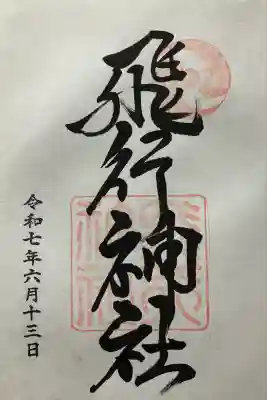 飛行神社
令和七年六月十三日